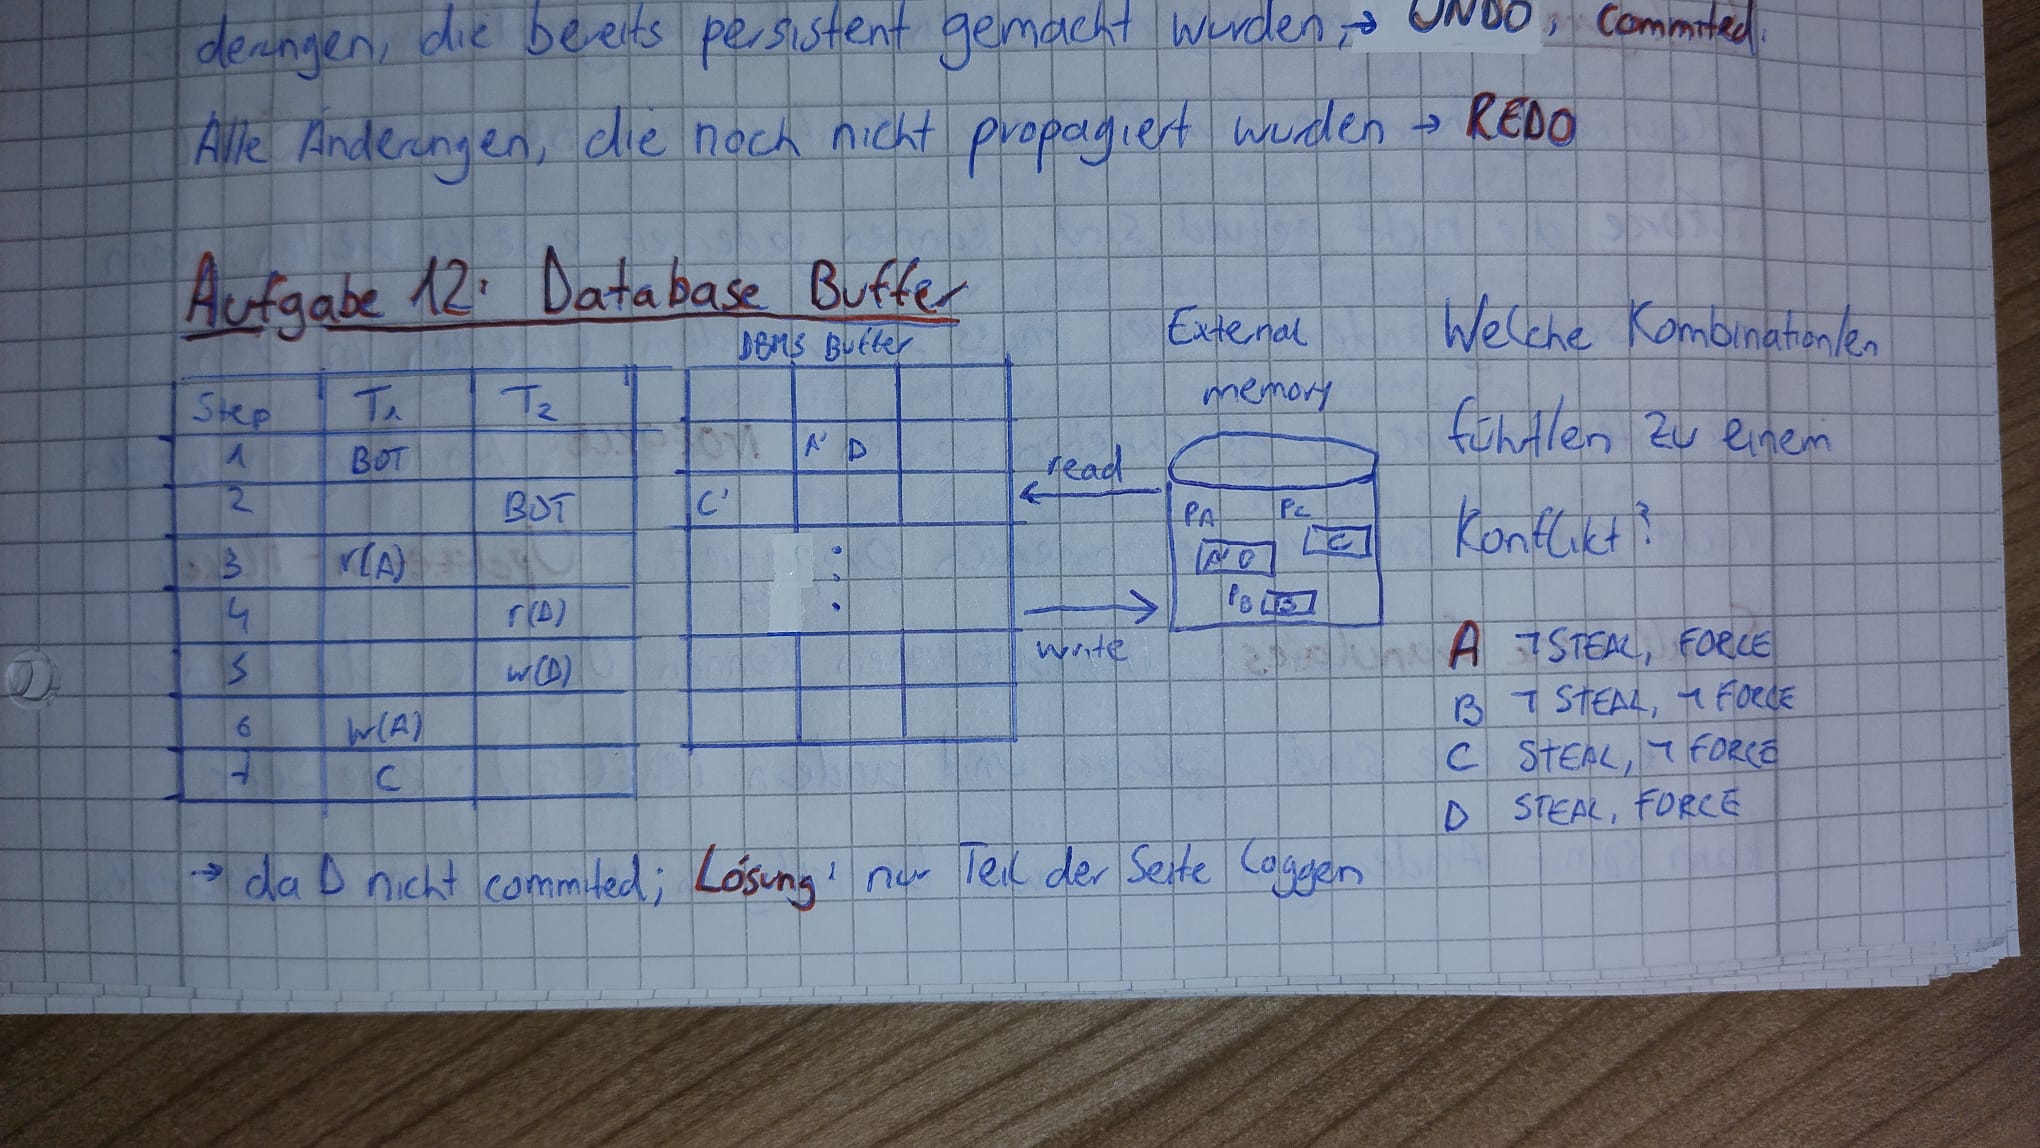 derungen, die bereits persistent gemacht wurden, → UNDO, commited.
Alle Änderungen, die noch nicht propagiert wurden → REDO
Aufgabe 12: Database Buffer
Step T1 T2
1 BOT
2 BOT
3 r(A)
4 r(D)
5 w(D)
6 w(A)
7 C
DBMS Buffer
A' D
C'
read
write
External
memory
PA PC
A' D C
PB B
Welche Kombination/en
führt/en zu einem
Konflikt?
A ¬STEAL, FORCE
B ¬ STEAL, ¬ FORCE
C STEAL, ¬ FORCE
D STEAL, FORCE
→ da D nicht commited; Lösung: nur Teil der Seite loggen